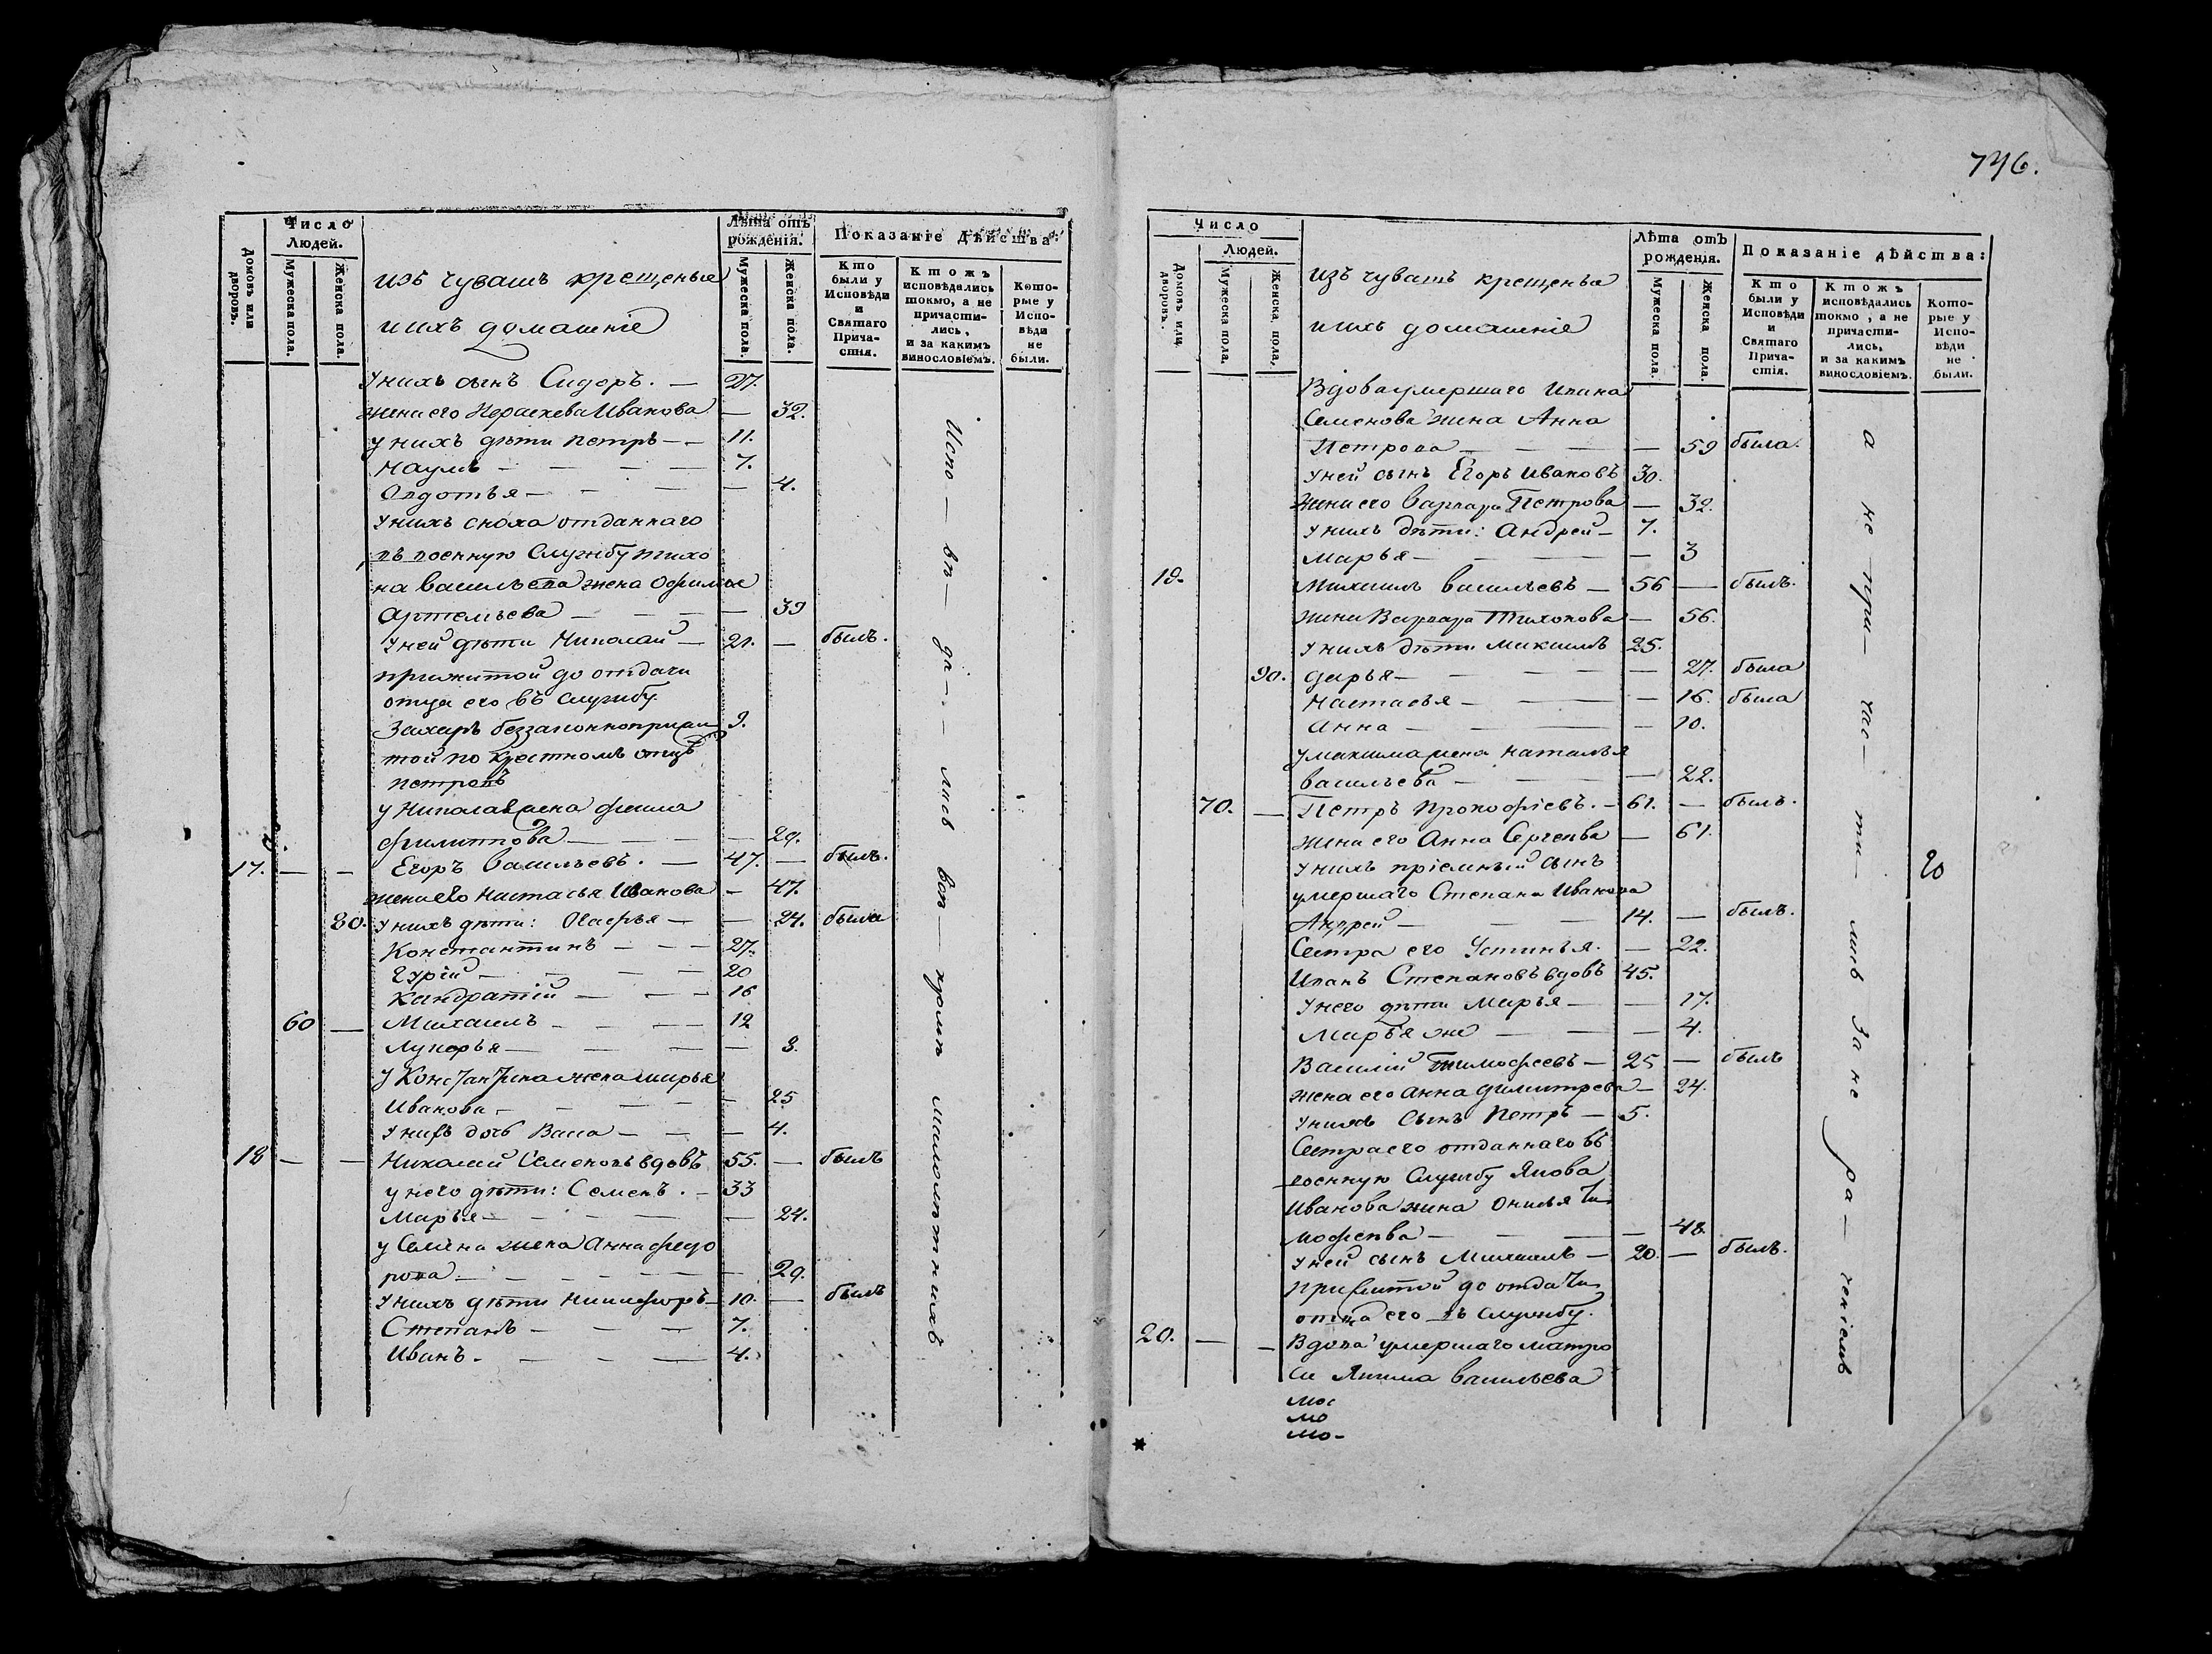 Число
Людей.
Домовъ или дворовъ.
Мужеска пола.
Женска пола.
изъ чувашъ крещеные
и ихъ домашніе
Лѣта отъ
рожденія.
Мужеска пола.
Женска пола.
Показаніе дѣйства:
Кто
были у
Исповѣди
и
Святаго
Прича-
стія.
Ктожъ
исповѣдались
токмо, а не
причасти-
лись,
и за какимъ
винословіемъ.
Кото-
рые у
Испо-
вѣди
не
были.
У нихъ сынъ Сидоръ. — 27.
жена его Параскева Иванова — 32.
у нихъ дѣти Петръ — 11.
Наумъ — 7.
Овдотья — 4.
У нихъ сноха отданнаго
въ военную Службу тихо
на Васильева жена Офимья
Артемьева — 39
У ней дѣти Николай — 21. — былъ.
прижитой до отдачи
отца его въ Службу.
Захаръ беззаконноприжи 9.
той по крестномъ отцѣ
Петровъ
у Николая жена
Филиппова — 29.
17. — — Егоръ Васильевъ. — 47. — былъ.
жена его Настасья Иванова — 47.
80. У нихъ дѣти: — 24. была
Константинъ — 27.
Гурій — 20
Кандратій — 16
60 — Михаилъ — 12
Лукерья — 8.
У Константина жена Марья
Иванова — 25
У нихъ дочь Васа — 4.
18 — — Николай Семеновъ вдовъ 55. — былъ
у него дѣти: Семенъ. — 33
Марья — 24.
у Семена жена Анна Федо
рова — 29.
У нихъ дѣти Никифоръ — 10. — былъ
Степанъ — 7.
Иванъ. — 4.
Испо — вѣ — да — лись
малолѣтнихъ
746.
Число
Людей.
Домовъ или дворовъ.
Мужеска пола.
Женска пола.
изъ чувашъ крещеныя
и ихъ домашніе
Лѣта отъ
рожденія.
Мужеска пола.
Женска пола.
Показаніе дѣйства:
Кто
были у
Исповѣди
и
Святаго
Прича-
стія.
Ктожъ
исповѣдались
токмо, а не
причасти-
лись,
и за какимъ
винословіемъ.
Кото-
рые у
Испо-
вѣди
не
были.
Вдова умершаго Ивана
Семенова жена Анна
Петрова — 59 была.
У ней сынъ Егоръ Ивановъ 30.
жена его Варвара Петрова — 32.
У нихъ дѣти: Андрей — 7.
Марья — 3
19. Михаилъ Васильевъ — 56 — былъ.
жена Варвара Тихонова — 56.
У нихъ дѣти Максимъ 25.
90. Дарья — 27. была
Настасья — 16. была
Анна — 10.
у Максима жена Наталья
Васильева — 22.
70. — Петръ Прокофіевъ. — 61. — былъ.
жена его Анна Сергеева — 61.
У нихъ пріемный сынъ
умершаго Степана Иванова
Андрей — 14. — былъ.
Сестра его Устинья. — 22.
Иванъ Степановъ вдовъ 45.
У него дѣти Марья — 17.
Марья же — 4.
Василій Тимофеевъ — 25 — былъ
жена его Анна Димитрева — 24.
У нихъ Сынъ Петръ — 5.
Сестра его отданнаго въ
военную Службу Якова
Иванова жена Ти
мофеева — 48.
У ней сынъ Михаилъ — 20. — былъ.
прижитой до отдачи
отца его въ Службу.
20. — — Вдова умершаго матро
са Якима Васильева
мос
мо
мо-
а не при — час — ти — лись за не ра — ченіемъ
20